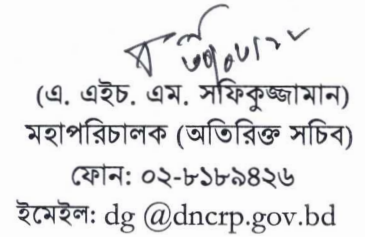 (এ. এইচ. এম. সফিকুজ্জামান)
মহাপরিচালক (অতিরিক্ত সচিব)
ফোন: ০২-৮১৮৯৪২৬
ইমেইল: dg @dncrp.gov.bd